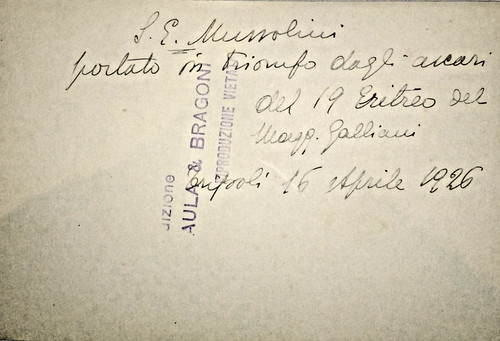 S. E. Mussolini
portato in trionfo dagli ascari
del 19 Eritreo del
Magg. Galliani
Tripoli 16 Aprile 1926
dizione
AULA & BRAGONI
RIPRODUZIONE VIETATA